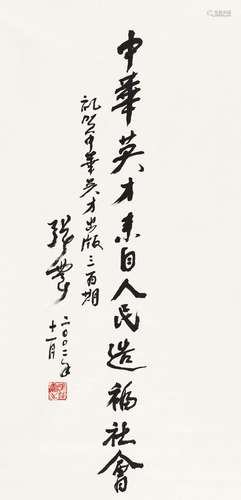 中華英才来自人民造福社會
祝贺中華英才出版三百期
张震
二〇〇二年
十一月